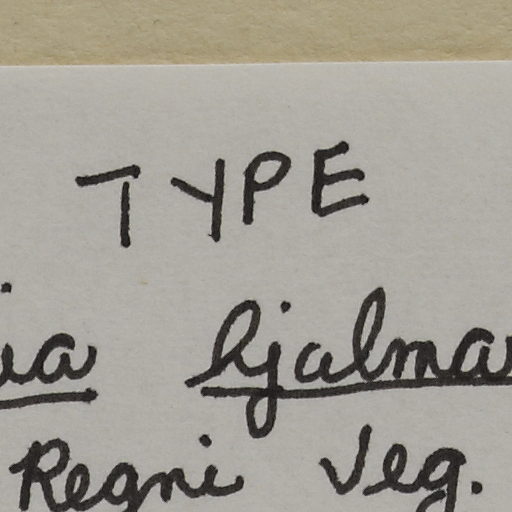 TYPE
ia hjalma
Regni Veg.